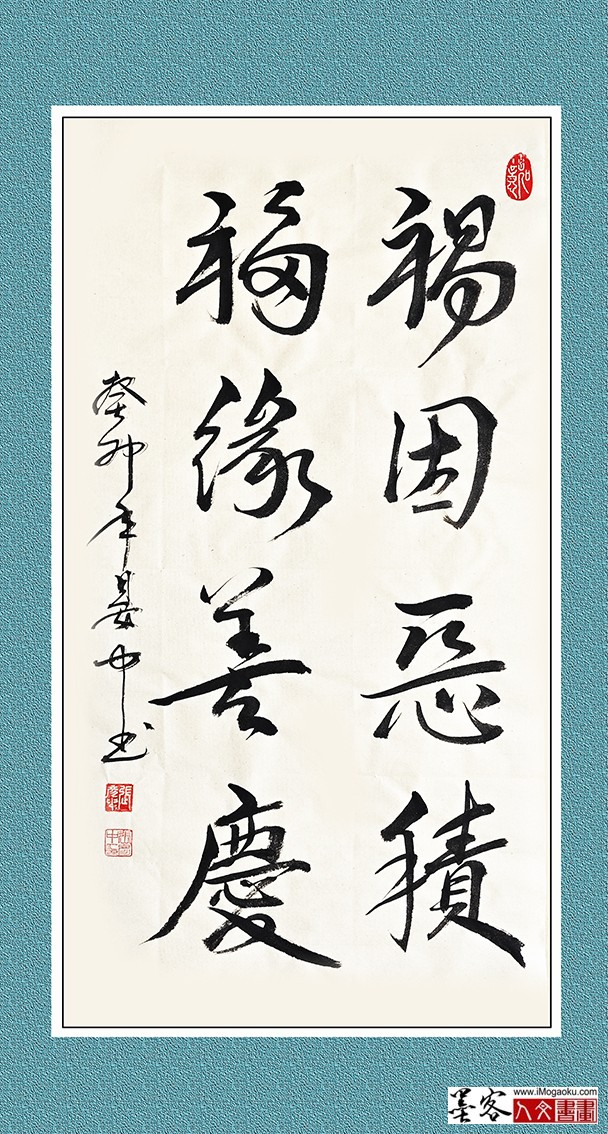 禍因惡積
福緣善慶
癸卯年晏中书
墨客
www.iMogaoku.com
人文書畫